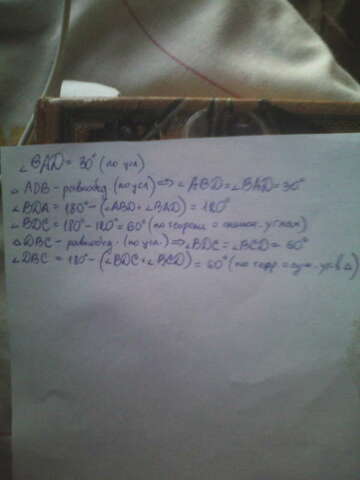 ∠BAD = 30° (по усл)
△ADB - равнобед. (по усл) ⇒ ∠ABD = ∠BAD = 30°
∠BDA = 180° - (∠ABD + ∠BAD) = 120°
∠BDC = 180° - 120° = 60° (по теореме о смежн. углах)
△DBC - равнобед. (по усл.) ⇒ ∠BDC = ∠BCD = 60°
∠DBC = 180° - (∠BDC + ∠BCD) = 60° (по теор о сум. угл в △)